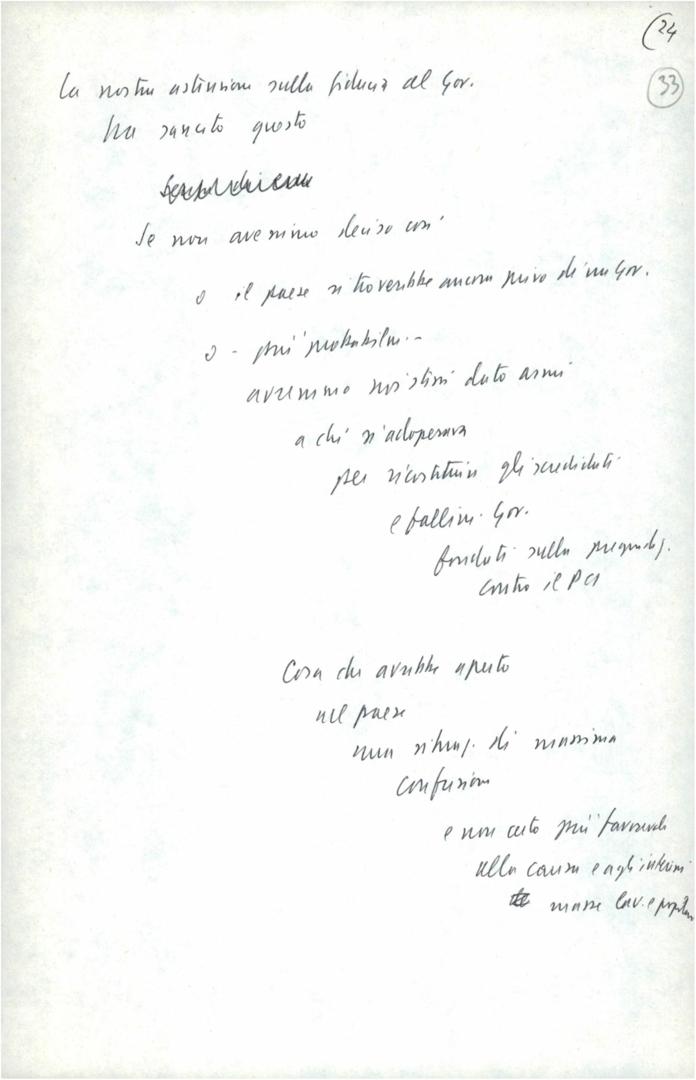 (24
33
La nostra astensione sulla fiducia al Gov.
ha sancito questo
Se non avessimo deciso così
o il paese si troverebbe ancora privo di un Gov.
o - più probabilm. -
avremmo noi stessi dato armi
a chi s'adoperava
per ricostituire gli screditati
e fallim. Gov.
fondati sulla pregiudiz.
contro il PCI
Cosa che avrebbe aperto
nel paese
una situaz. di massima
confusione
e non certo più favorevole
alla causa e agli interessi
masse lav. e popolari